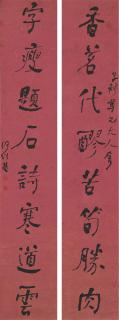 香茗代醪苦筍勝肉
字瘦題石詩寒道雲